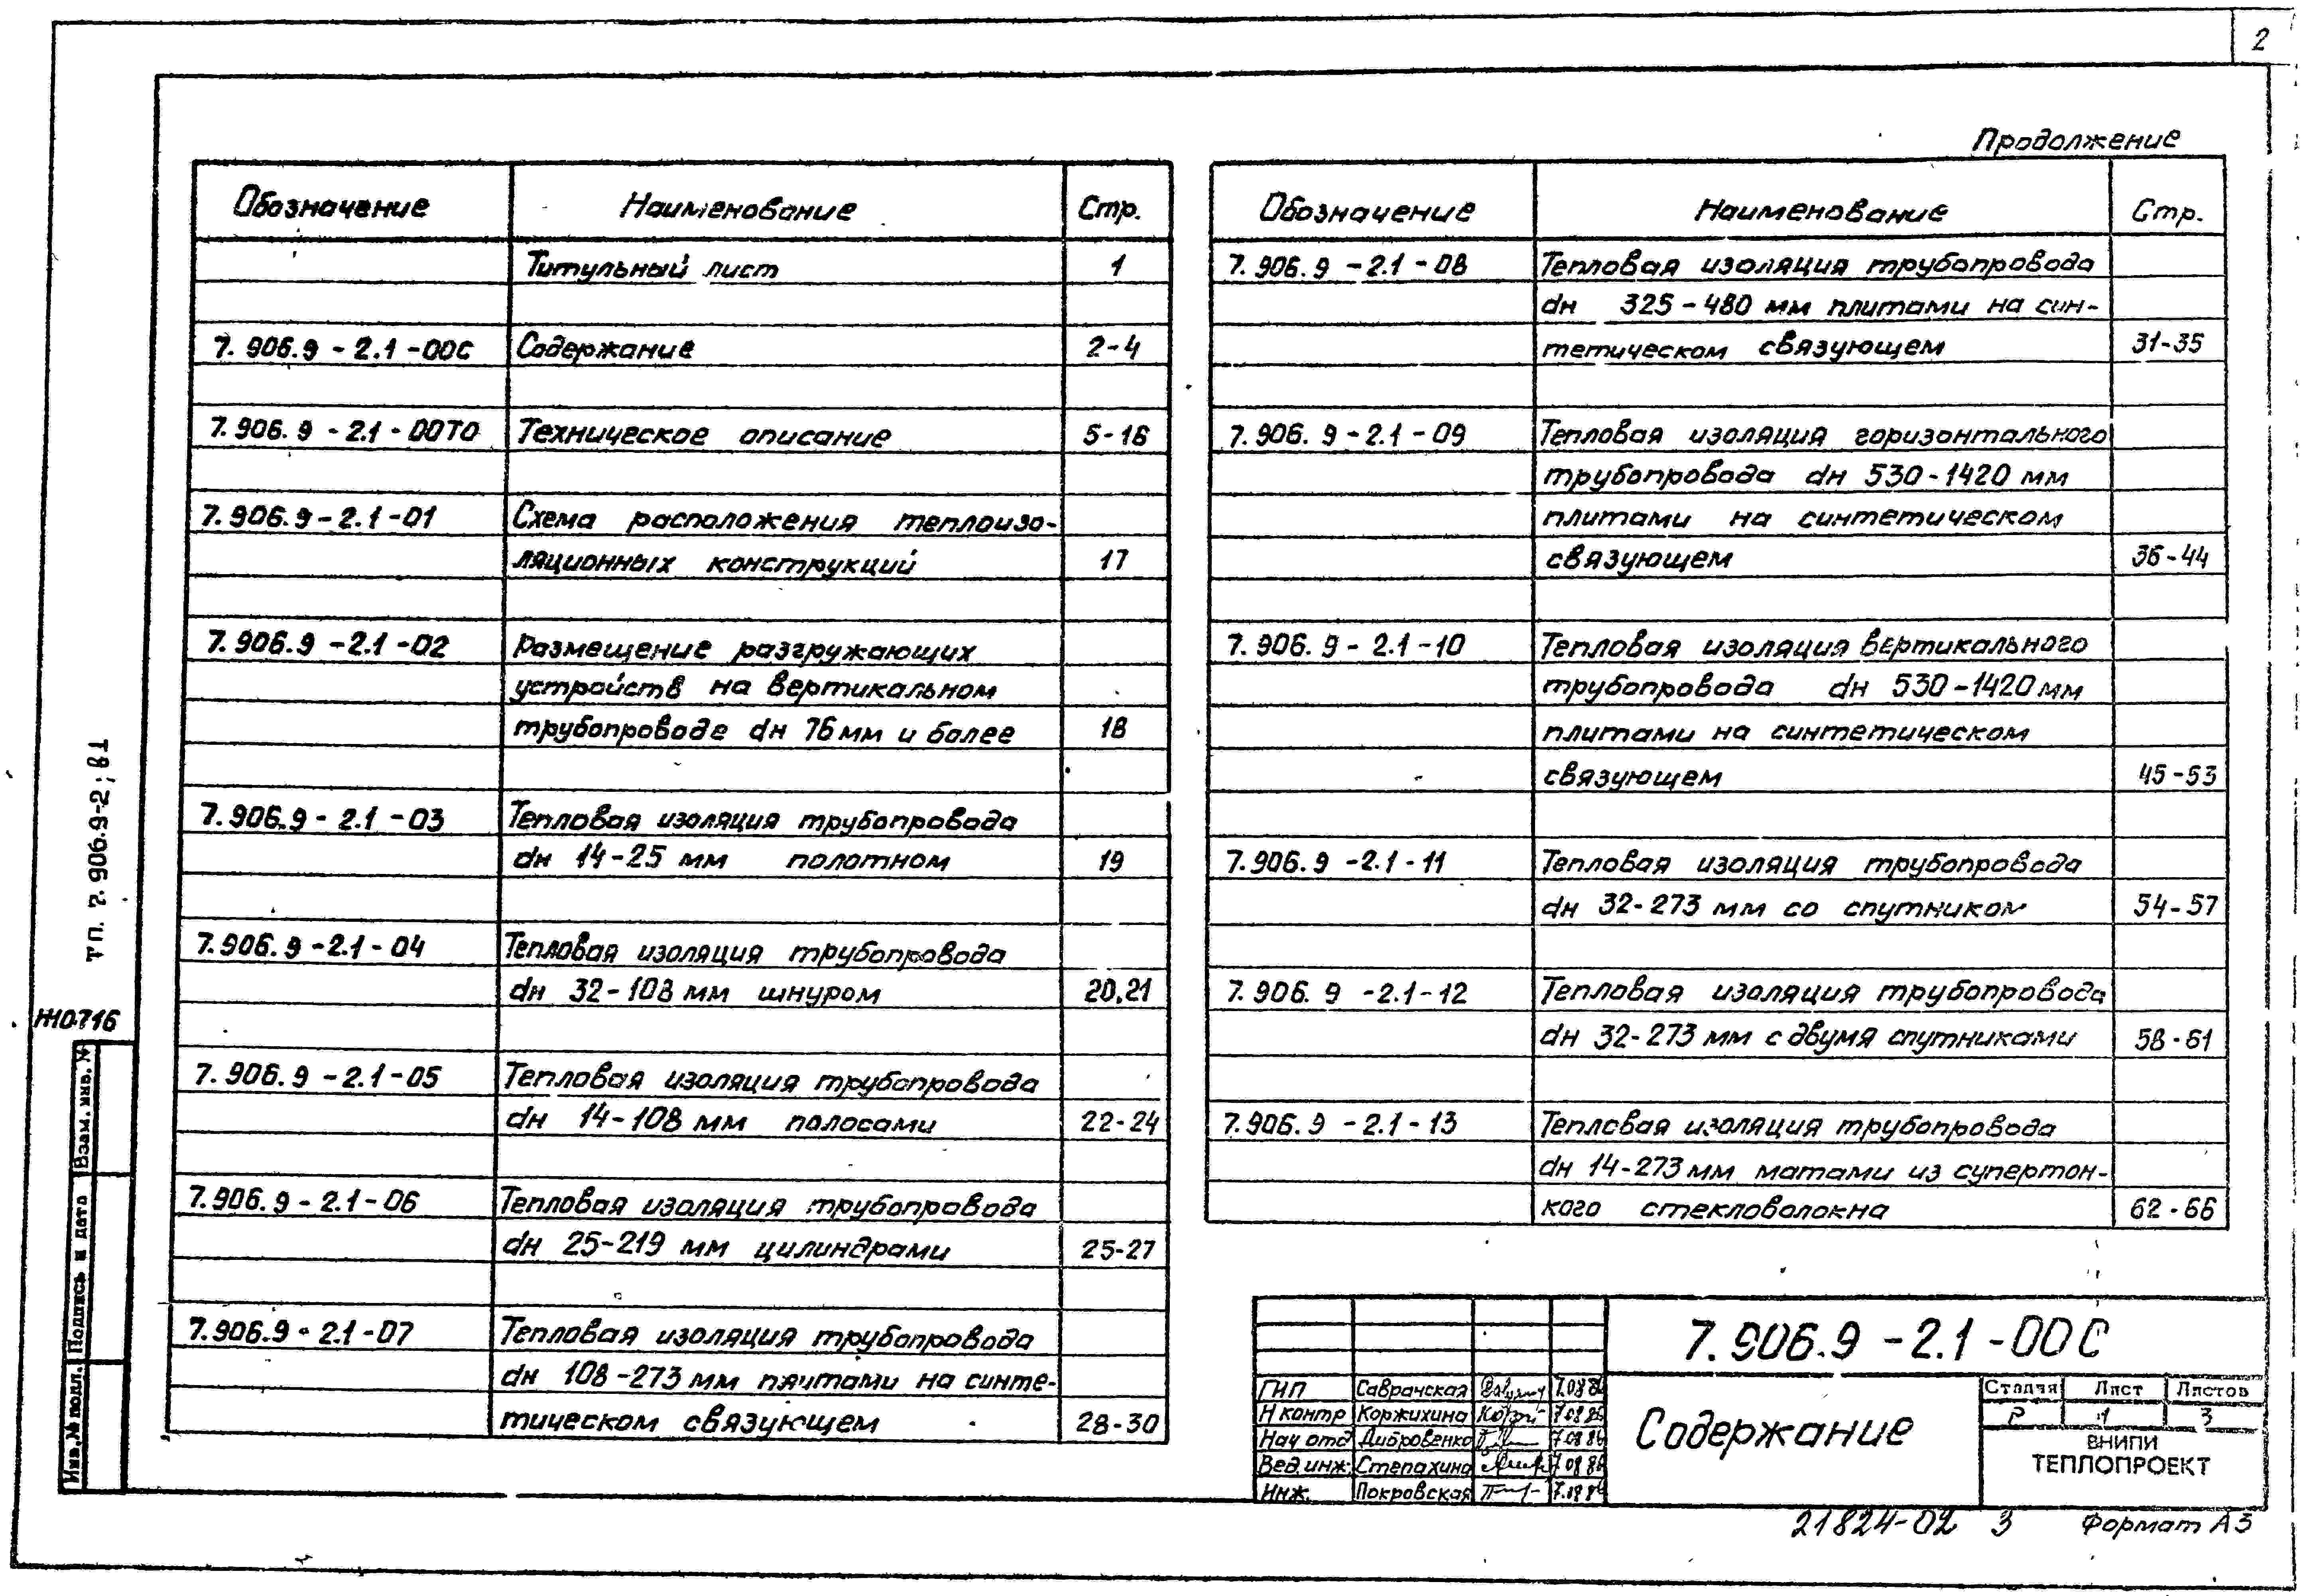 2
Продолжение
Обозначение Наименование Стр.
Титульный лист 1
7.906.9-2.1-00С Содержание 2-4
7.906.9-2.1-00ТО Техническое описание 5-16
7.906.9-2.1-01 Схема расположения теплоизо-
ляционных конструкций 17
7.906.9-2.1-02 Размещение разгружающих
устройств на вертикальном
трубопроводе dн 76 мм и более 18
7.906.9-2.1-03 Тепловая изоляция трубопровода
dн 14-25 мм полотном 19
7.906.9-2.1-04 Тепловая изоляция трубопровода
dн 32-108 мм шнуром 20,21
7.906.9-2.1-05 Тепловая изоляция трубопровода
dн 14-108 мм полосами 22-24
7.906.9-2.1-06 Тепловая изоляция трубопровода
dн 25-219 мм цилиндрами 25-27
7.906.9-2.1-07 Тепловая изоляция трубопровода
dн 108-273 мм плитами на синте-
тическом связующем 28-30
Обозначение Наименование Стр.
7.906.9-2.1-08 Тепловая изоляция трубопровода
dн 325-480 мм плитами на син-
тетическом связующем 31-35
7.906.9-2.1-09 Тепловая изоляция горизонтального
трубопровода dн 530-1420 мм
плитами на синтетическом
связующем 36-44
7.906.9-2.1-10 Тепловая изоляция вертикального
трубопровода dн 530-1420 мм
плитами на синтетическом
связующем 45-53
7.906.9-2.1-11 Тепловая изоляция трубопровода
dн 32-273 мм со спутником 54-57
7.906.9-2.1-12 Тепловая изоляция трубопровода
dн 32-273 мм с двумя спутниками 58-61
7.906.9-2.1-13 Тепловая изоляция трубопровода
dн 14-273 мм матами из супертон-
кого стекловолокна 62-66
т п. 7.906.9-2; В1
Ж10716
Взам. инв. №
Подпись и дата
Инв. № подл.
7.906.9-2.1-00С
ГИП Саврачская 7.08.86
Н контр Коржихина 7.08.86
Нач отд Дибровенко 7.08.86
Вед. инж. Степахина 7.08.86
Инж. Покровская
Содержание
Стадия Лист Листов
Р 1 3
ВНИПИ
ТЕПЛОПРОЕКТ
21824-02 3 Формат А3